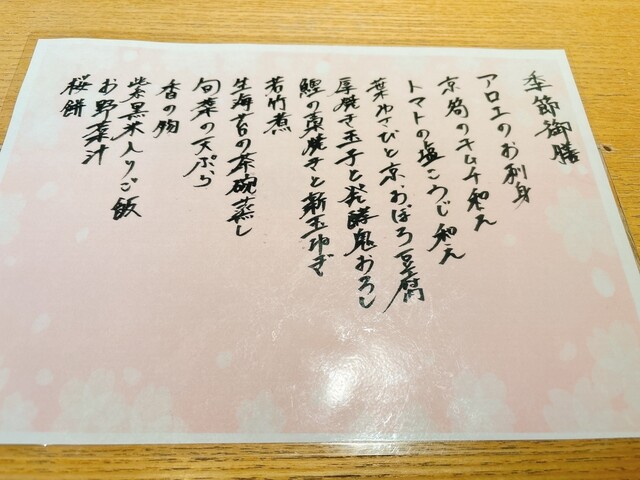 季節御膳
アロエのお刺身
京筍のキムチ和え
トマトの塩こうじ和え
葉わさびと京おぼろ豆腐
厚焼き玉子と発酵鬼おろし
鰹の藁焼きと新玉ねぎ
若竹煮
生海苔の茶碗蒸し
旬菜の天ぷら
香の物
紫黒米入りご飯
お野菜汁
桜餅